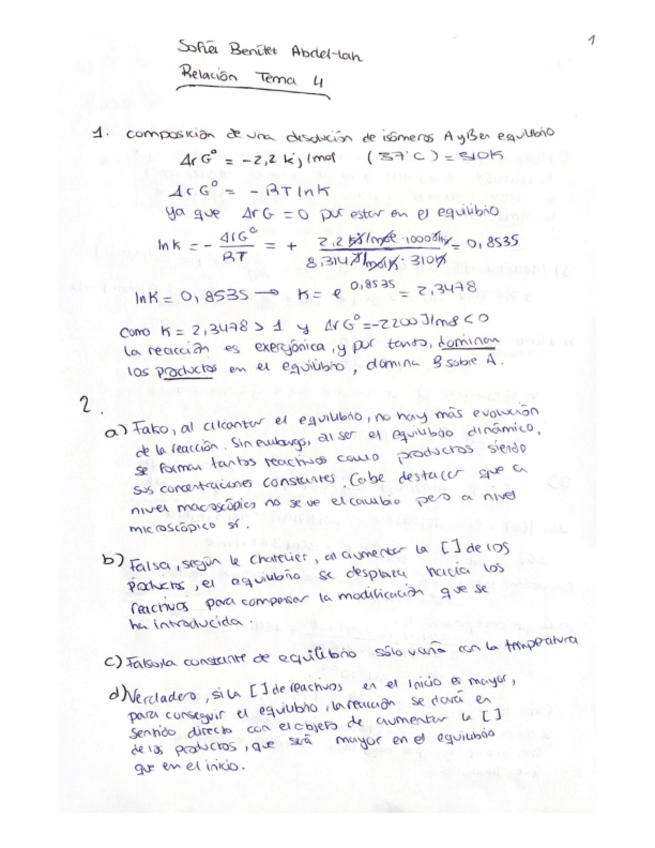 Sofía Benítez Abdel-lah
1
Relación Tema 4
1. composición de una disolución de isómeros A y B en equilibrio
ΔrG° = -2,2 kJ/mol (37°C) = 310K
ΔrG° = - RT ln K
ya que ΔrG = 0 por estar en el equilibrio
ln K = - ΔrG°/RT = + 2,2 kJ/mol · 1000 J/kJ / 8,314 J/mol K · 310K = 0,8535
ln K = 0,8535 → K = e^0,8535 = 2,3478
Como K = 2,3478 > 1 y ΔrG° = -2200 J/mol < 0
la reacción es exergónica, y por tanto, dominan
los productos en el equilibrio, domina B sobre A.
2.
a) Falso, al alcanzar el equilibrio, no hay más evolución
de la reacción. Sin embargo, al ser el equilibrio dinámico,
se forman tantos reactivos como productos siendo
sus concentraciones constantes. Cabe destacar que a
nivel macroscópico no se ve el cambio pero a nivel
microscópico sí.
b) Falsa, según le Chatelier, al aumentar la [ ] de los
productos, el equilibrio se desplaza hacia los
reactivos para compensar la modificación que se
ha introducido.
c) Falso, la constante de equilibrio sólo varía con la temperatura
d) Verdadero, si la [ ] de reactivos en el inicio es mayor,
para conseguir el equilibrio, la reacción se dará en
sentido directo con el objeto de aumentar la [ ]
de los productos, que será mayor en el equilibrio
que en el inicio.